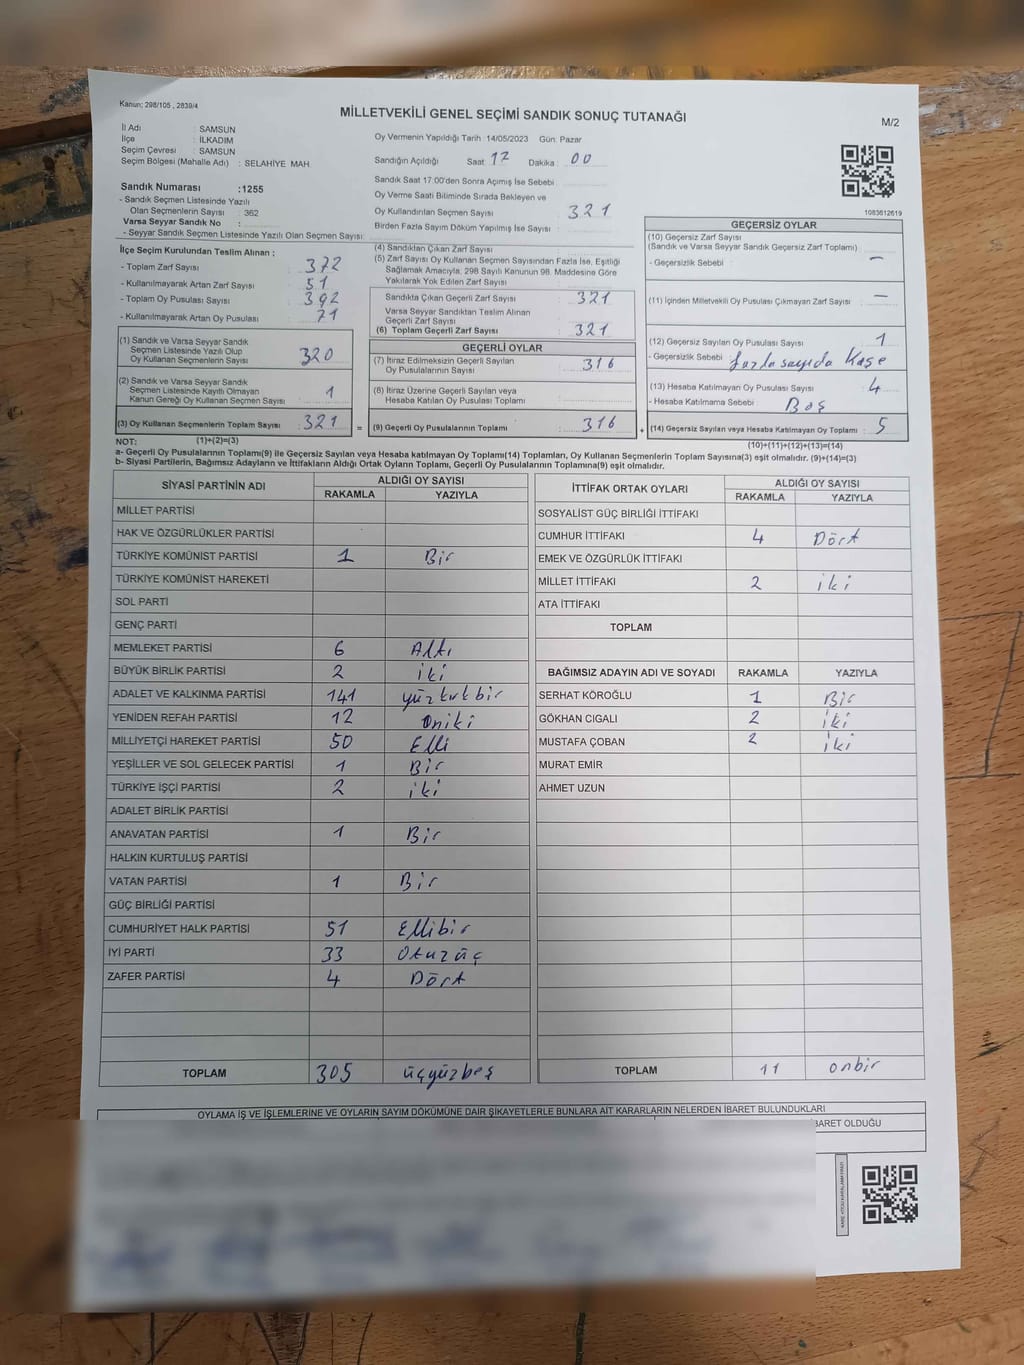 Kanun; 298/105 , 2839/4
MİLLETVEKİLİ GENEL SEÇİMİ SANDIK SONUÇ TUTANAĞI
M/2
İl Adı : SAMSUN
İlçe : İLKADIM
Seçim Çevresi : SAMSUN
Seçim Bölgesi (Mahalle Adı) : SELAHİYE MAH.
Oy Vermenin Yapıldığı Tarih :14/05/2023 Gün: Pazar
Sandığın Açıldığı Saat 17 Dakika : 00
Sandık Saat 17:00'den Sonra Açımış İse Sebebi :
Oy Verme Saati Bitiminde Sırada Bekleyen ve
Oy Kullandırılan Seçmen Sayısı 321
Birden Fazla Sayım Döküm Yapılmış İse Sayısı :
1083612619
Sandık Numarası :1255
- Sandık Seçmen Listesinde Yazılı
Olan Seçmenlerin Sayısı : 362
Varsa Seyyar Sandık No :
- Seyyar Sandık Seçmen Listesinde Yazılı Olan Seçmen Sayısı:
İlçe Seçim Kurulundan Teslim Alınan :
- Toplam Zarf Sayısı : 372
- Kullanılmayarak Artan Zarf Sayısı : 51
- Toplam Oy Pusulası Sayısı : 392
- Kullanılmayarak Artan Oy Pusulası : 71
(1) Sandık ve Varsa Seyyar Sandık
Seçmen Listesinde Yazılı Olup
Oy Kullanan Seçmenlerin Sayısı 320
(2) Sandık ve Varsa Seyyar Sandık
Seçmen Listesinde Kayıtlı Olmayan
Kanun Gereği Oy Kullanan Seçmen Sayısı : 1
(3) Oy Kullanan Seçmenlerin Toplam Sayısı : 321 =
(4) Sandıktan Çıkan Zarf Sayısı
(5) Zarf Sayısı Oy Kullanan Seçmen Sayısından Fazla İse, Eşitliği
Sağlamak Amacıyla, 298 Sayılı Kanunun 98. Maddesine Göre
Yakılarak Yok Edilen Zarf Sayısı
Sandıkta Çıkan Geçerli Zarf Sayısı 321
Varsa Seyyar Sandıktan Teslim Alınan
Geçerli Zarf Sayısı
(6) Toplam Geçerli Zarf Sayısı 321
GEÇERLİ OYLAR
(7) İtiraz Edilmeksizin Geçerli Sayılan
Oy Pusulalarının Sayısı : 316
(8) İtiraz Üzerine Geçerli Sayılan veya
Hesaba Katılan Oy Pusulası Toplamı
(9) Geçerli Oy Pusulalarının Toplamı : 316 +
GEÇERSİZ OYLAR
(10) Geçersiz Zarf Sayısı
(Sandık ve Varsa Seyyar Sandık Geçersiz Zarf Toplamı)
- Geçersizlik Sebebi : —
(11) İçinden Milletvekili Oy Pusulası Çıkmayan Zarf Sayısı : —
(12) Geçersiz Sayılan Oy Pusulası Sayısı : 1
- Geçersizlik Sebebi : fazla sayıda Kaşe
(13) Hesaba Katılmayan Oy Pusulası Sayısı : 4
- Hesaba Katılmama Sebebi : Boş
(14) Geçersiz Sayılan veya Hesaba Katılmayan Oy Toplamı : 5
NOT: (1)+(2)=(3)
(10)+(11)+(12)+(13)=(14)
a- Geçerli Oy Pusulalarının Toplamı(9) ile Geçersiz Sayılan veya Hesaba katılmayan Oy Toplamı(14) Toplamları, Oy Kullanan Seçmenlerin Toplam Sayısına(3) eşit olmalıdır. (9)+(14)=(3)
b- Siyasi Partilerin, Bağımsız Adayların ve İttifakların Aldığı Ortak Oyların Toplamı, Geçerli Oy Pusulalarının Toplamına(9) eşit olmalıdır.
SİYASİ PARTİNİN ADI ALDIĞI OY SAYISI
RAKAMLA YAZIYLA
MİLLET PARTİSİ
HAK VE ÖZGÜRLÜKLER PARTİSİ
TÜRKİYE KOMÜNİST PARTİSİ 1 Bir
TÜRKİYE KOMÜNİST HAREKETİ
SOL PARTİ
GENÇ PARTİ
MEMLEKET PARTİSİ 6 Altı
BÜYÜK BİRLİK PARTİSİ 2 iki
ADALET VE KALKINMA PARTİSİ 141 yüzkırkbir
YENİDEN REFAH PARTİSİ 12 Oniki
MİLLİYETÇİ HAREKET PARTİSİ 50 Elli
YEŞİLLER VE SOL GELECEK PARTİSİ 1 Bir
TÜRKİYE İŞÇİ PARTİSİ 2 iki
ADALET BİRLİK PARTİSİ
ANAVATAN PARTİSİ 1 Bir
HALKIN KURTULUŞ PARTİSİ
VATAN PARTİSİ 1 Bir
GÜÇ BİRLİĞİ PARTİSİ
CUMHURİYET HALK PARTİSİ 51 Ellibir
İYİ PARTİ 33 Otuzüç
ZAFER PARTİSİ 4 Dört
TOPLAM 305 üçyüzbeş
İTTİFAK ORTAK OYLARI ALDIĞI OY SAYISI
RAKAMLA YAZIYLA
SOSYALİST GÜÇ BİRLİĞİ İTTİFAKI
CUMHUR İTTİFAKI 4 Dört
EMEK VE ÖZGÜRLÜK İTTİFAKI
MİLLET İTTİFAKI 2 iki
ATA İTTİFAKI
TOPLAM
BAĞIMSIZ ADAYIN ADI VE SOYADI RAKAMLA YAZIYLA
SERHAT KÖROĞLU 1 Bir
GÖKHAN CIGALI 2 iki
MUSTAFA ÇOBAN 2 iki
MURAT EMİR
AHMET UZUN
TOPLAM 11 onbir
OYLAMA İŞ VE İŞLEMLERİNE VE OYLARIN SAYIM DÖKÜMÜNE DAİR ŞİKAYETLERLE BUNLARA AİT KARARLARIN NELERDEN İBARET BULUNDUKLARI
BARET OLDUĞU